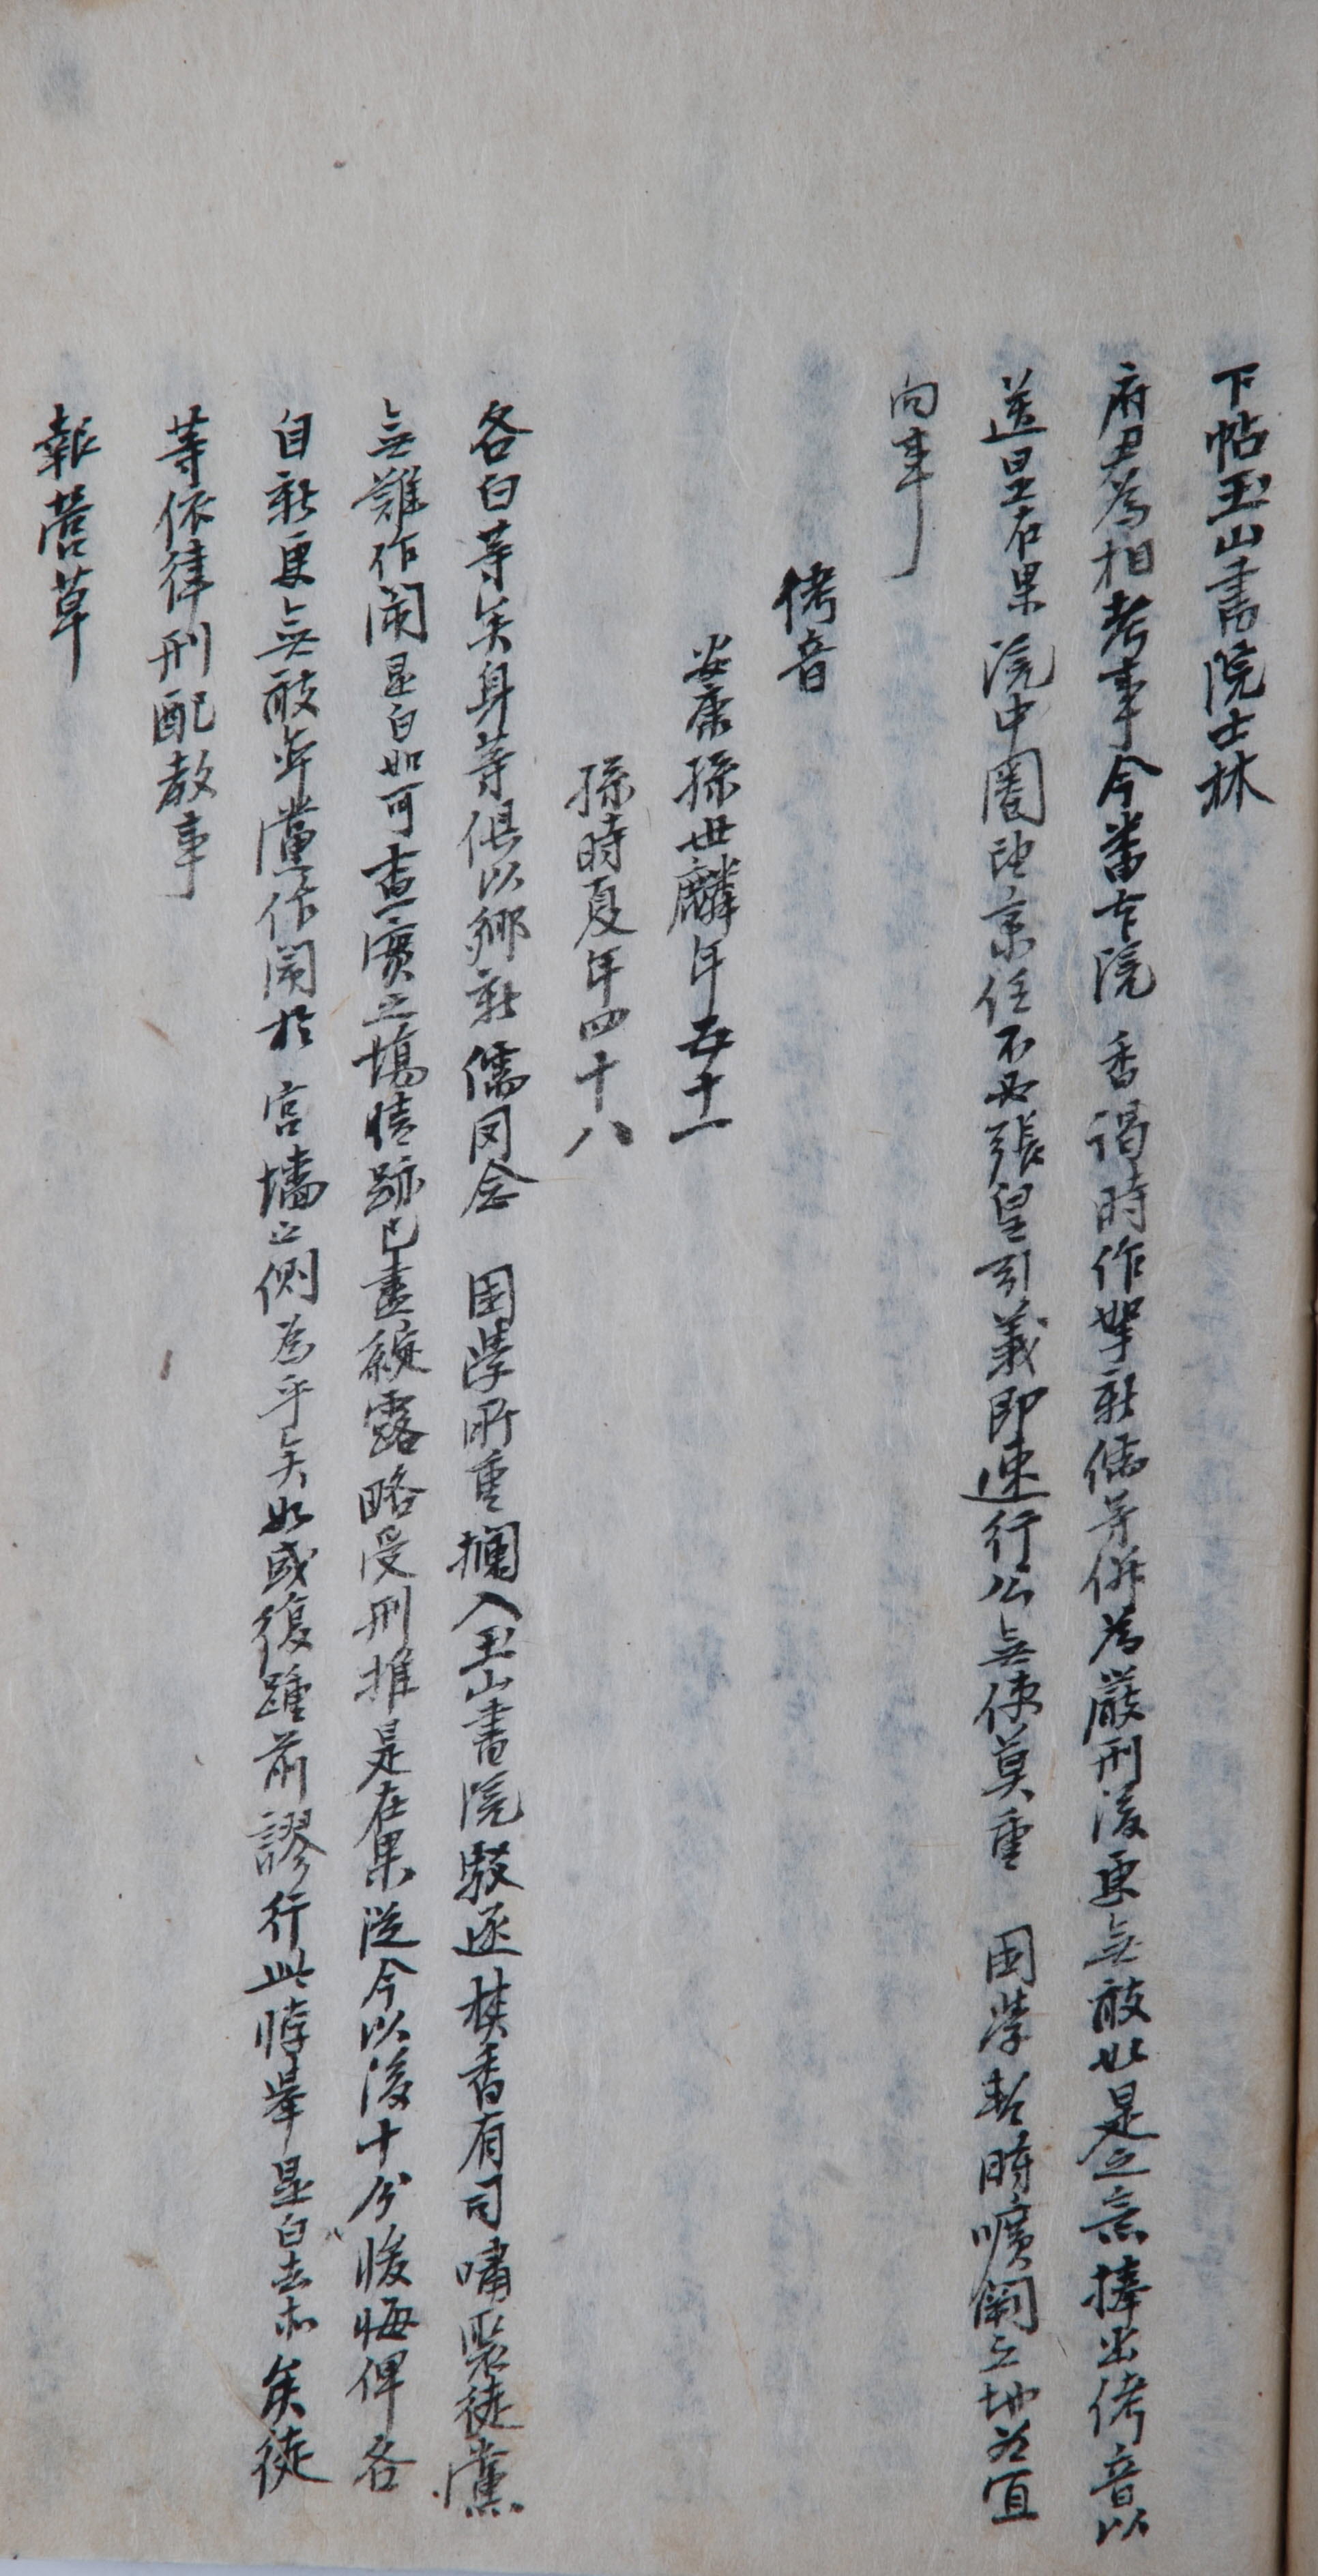 下帖玉山書院士林
府尹爲相考事今番右院 香謁時作拏新儒等倂爲嚴刑後更無敢如是之意捧出侤音以
送是在果 院中圈雖未任不必張皇引義卽速行公無使莫重 國學暫時曠闕之地爲宜
向事
侤音
安康孫世麟年五十一
孫時夏年四十八
各白等矣身等俱以鄕新儒罔念 國學所重攔入玉山書院驅逐焚香有司嘯聚徒黨
無難作鬧是白如可査實之塲情跡已盡綻露略受刑推是在果從今以後十分悛悔俾各
自新更無敢年黨作鬧於 宮墻之側爲乎矣如或復踵前謬行此悖擧是白去等矣徒
等依律刑配敎事
報營草